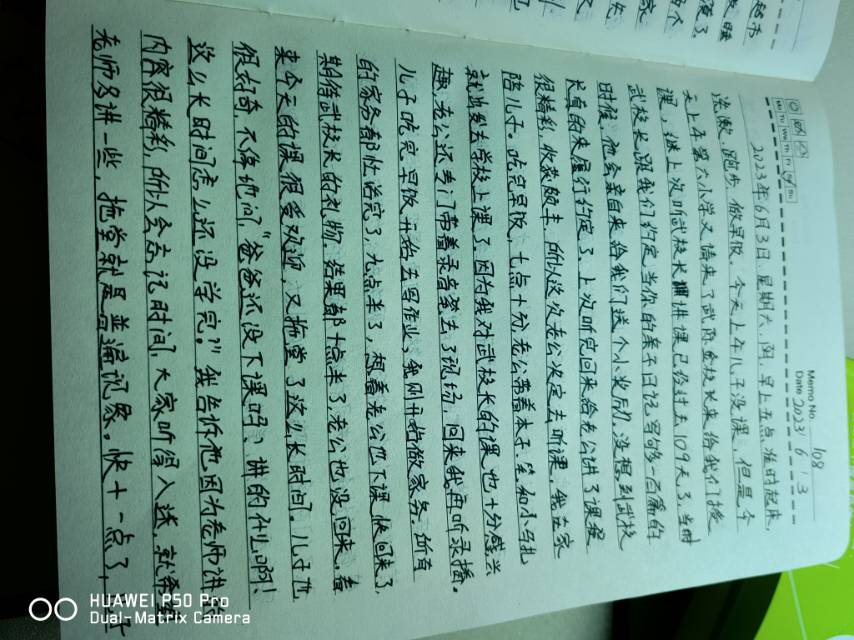 Memo No. 108
Date 2023 / 6 / 3
Mo Tu We Th Fr Sa Su
2023年6月3日,星期六,阴,早上五点准时起床,
洗漱,跑步,做早饭,今天上午儿子没课,但是今
天上午第六小学又请来了武 校长来给我们授
课,继上次听武校长讲课已经过去109天了,当时
武校长跟我们约定当你的亲子日记写够一百篇的
时候,他会亲自来给我们送个小奖励,没想到武校
长真的来履行约定了,上次听完回来给老公讲了课程
很精彩,收获颇丰,所以这次老公决定去听课,我在家
陪儿子。吃完早饭,七点十分,老公带着本子、笔和小马扎
就出发去学校上课了,因为我对武校长的课也十分感兴
趣,老公还专门带着录音笔去了现场,回来我再听录播。
儿子吃完早饭开始去写作业,我则开始做家务,所有
的家务都收拾完了,九点半了,想着老公也下课快回来了,
期待武校长的礼物,结果都十点半了,老公也没回来,看
来今天的课很受欢迎,又拖堂了这么长时间。儿子也
很好奇,不停地问,“爸爸还没下课吗、讲的什么啊!
这么长时间怎么还没学完?”我告诉他因为老师讲的
内容很精彩,所以会忘记时间,大家听得入迷,就希望
老师多讲一些,拖堂就是普遍现象。快十一点了,